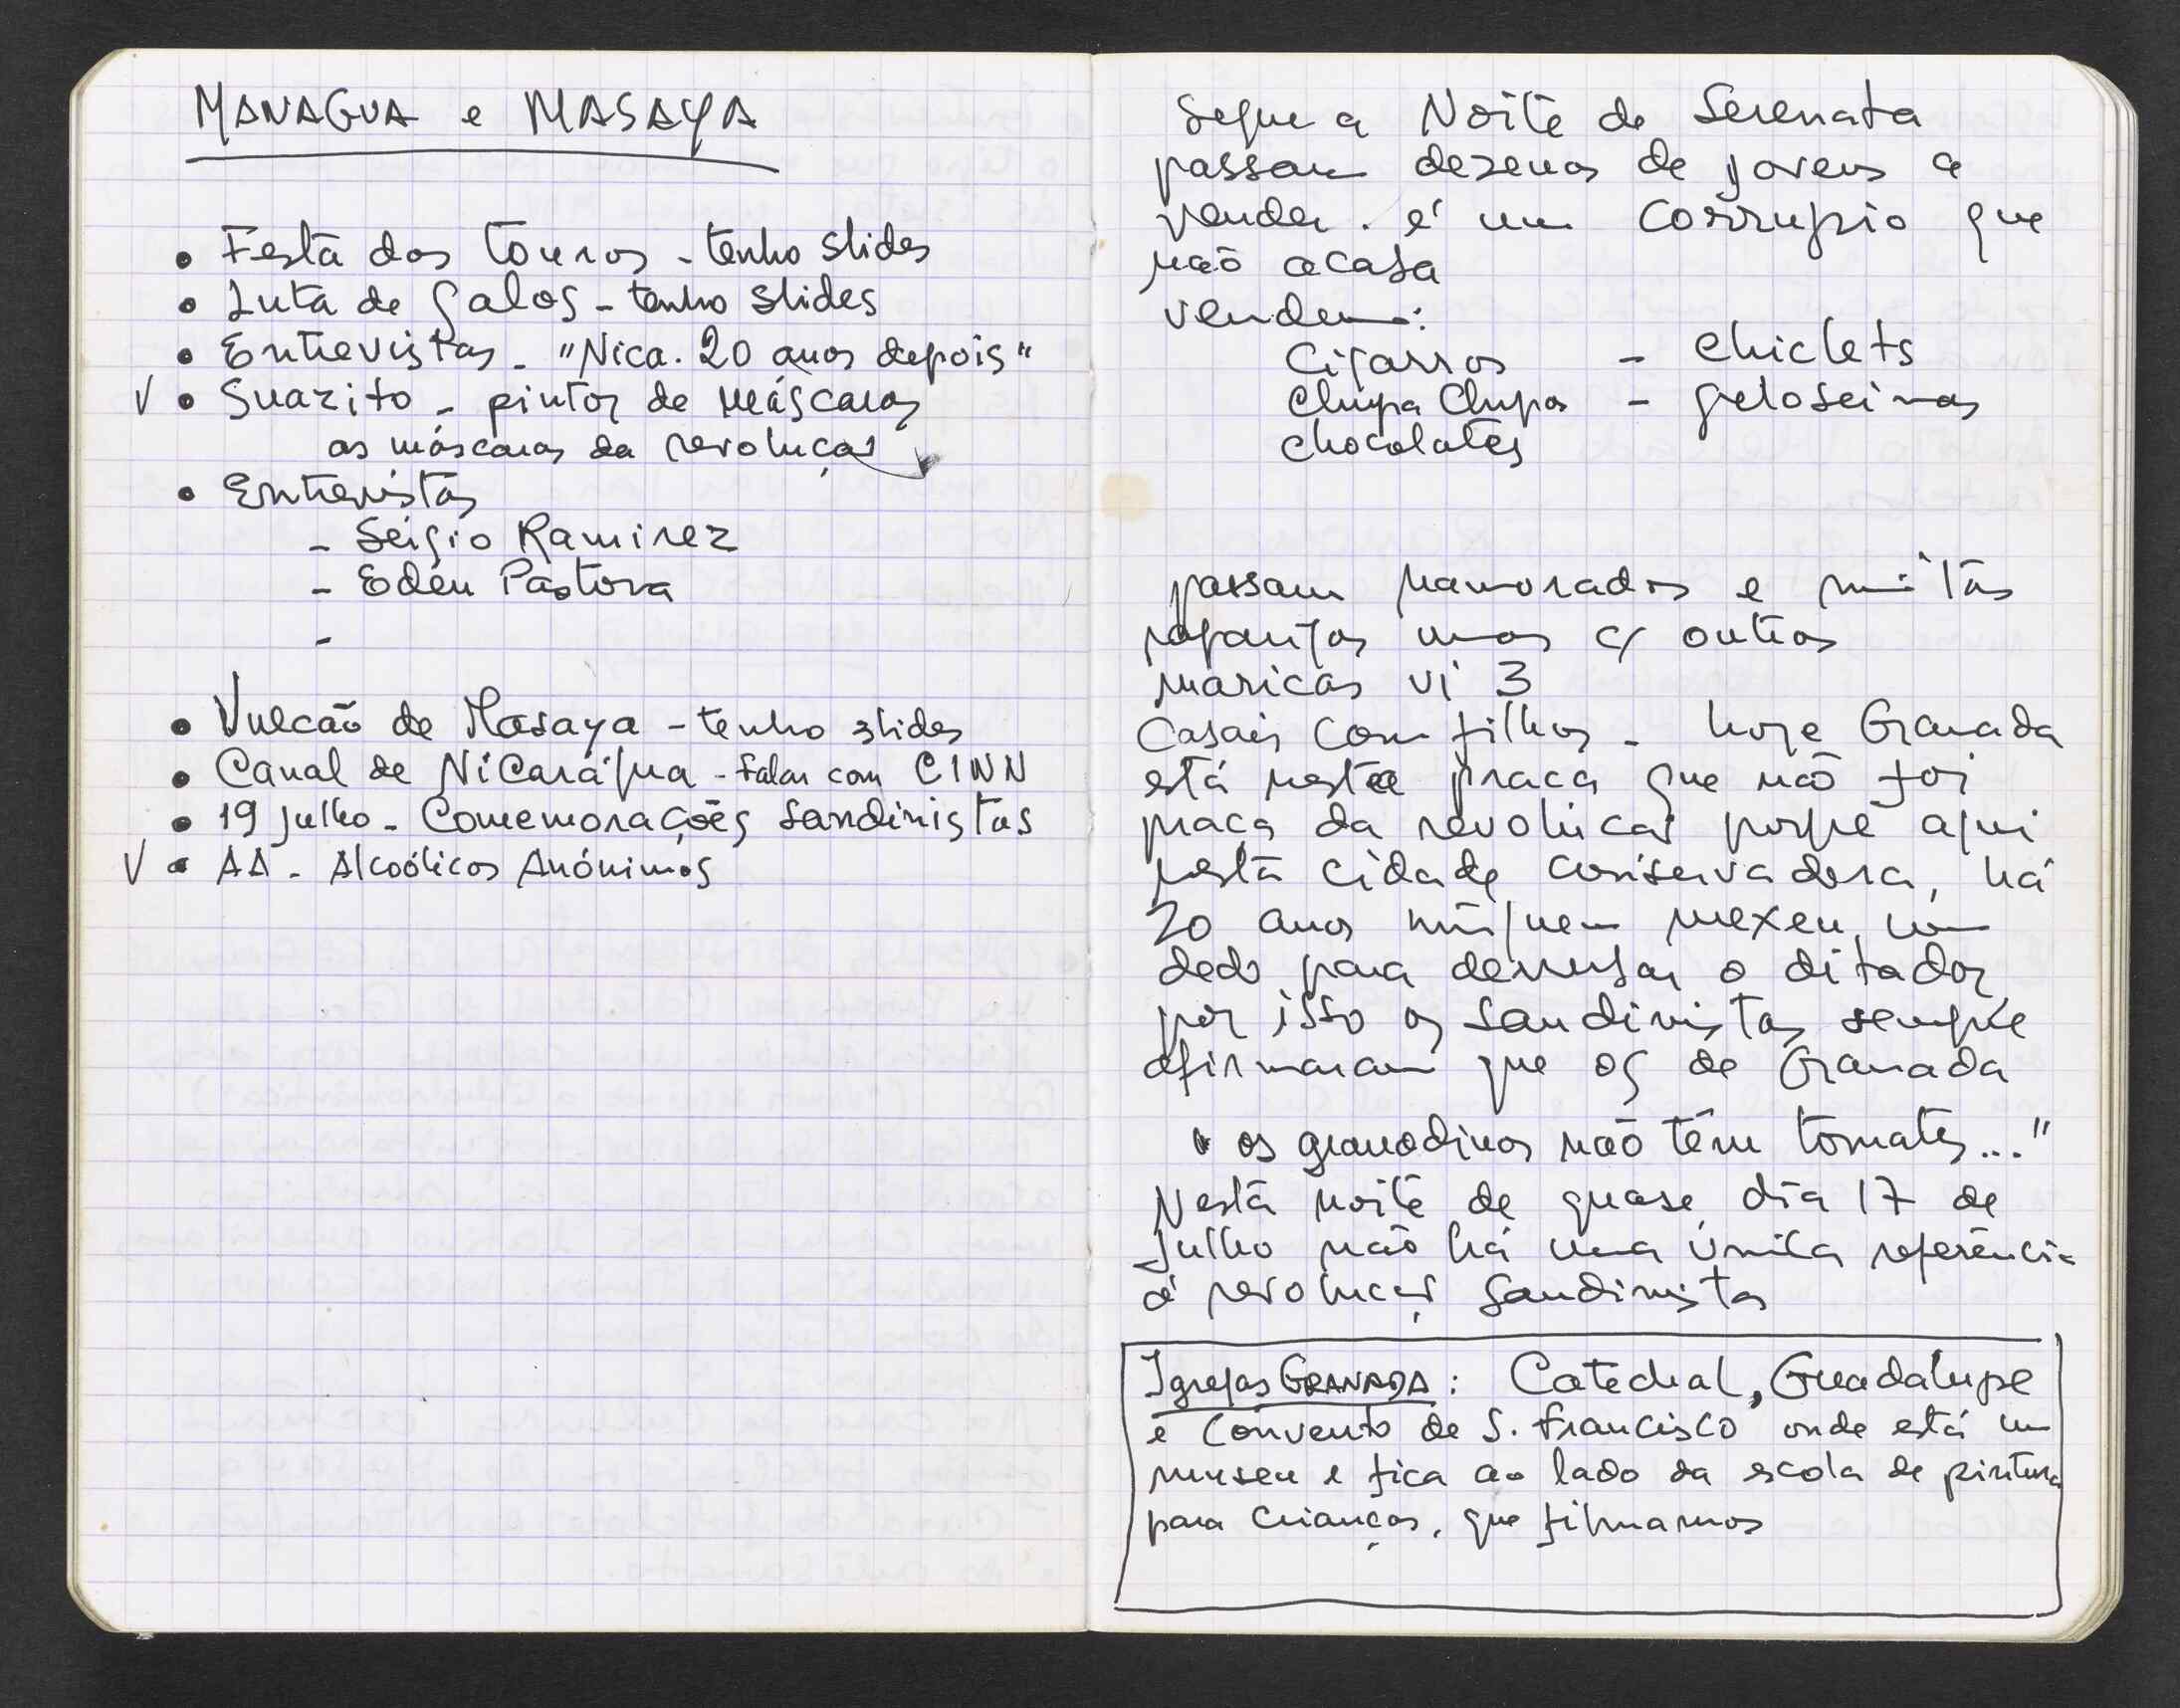 MANAGUA e MASAYA
• Festa dos touros - tenho slides
• Luta de galos - tenho slides
• Entrevistas - "Nica. 20 anos depois"
V • Suazito - pintor de máscaras
as máscaras da revolução
• Entrevistas
- Sérgio Ramirez
- Edén Pastora
-
• Vulcão de Masaya - tenho slides
• Canal de Nicarágua - falar com CINN
• 19 julho - Comemorações Sandinistas
V • AA - Alcoólicos Anónimos
Segue a Noite de Serenata
passam dezenas de jovens a
vender. é um corrupio que
não acaba
vendem:
Cigarros - chiclets
Chupa Chupas - geloseimas
chocolates
passam namorados e muitas
raparigas umas c/ outras
maricas vi 3
Casais com filhos - hoje Granada
está nesta praça que não foi
praça da revolução porque aqui
nesta cidade conservadora, há
20 anos ninguem mexeu um
dedo para derrubar o ditador,
por isso os Sandinistas sempre
afirmaram que os de Granada
" os granadinos não têm tomates..."
Nesta noite de quase dia 17 de
Julho não há uma única referência
á revolução Sandinista
Igrejas GRANADA: Catedral, Guadalupe
e Convento de S. Francisco onde está um
museu e fica ao lado da escola de pintura
para crianças, que filmamos